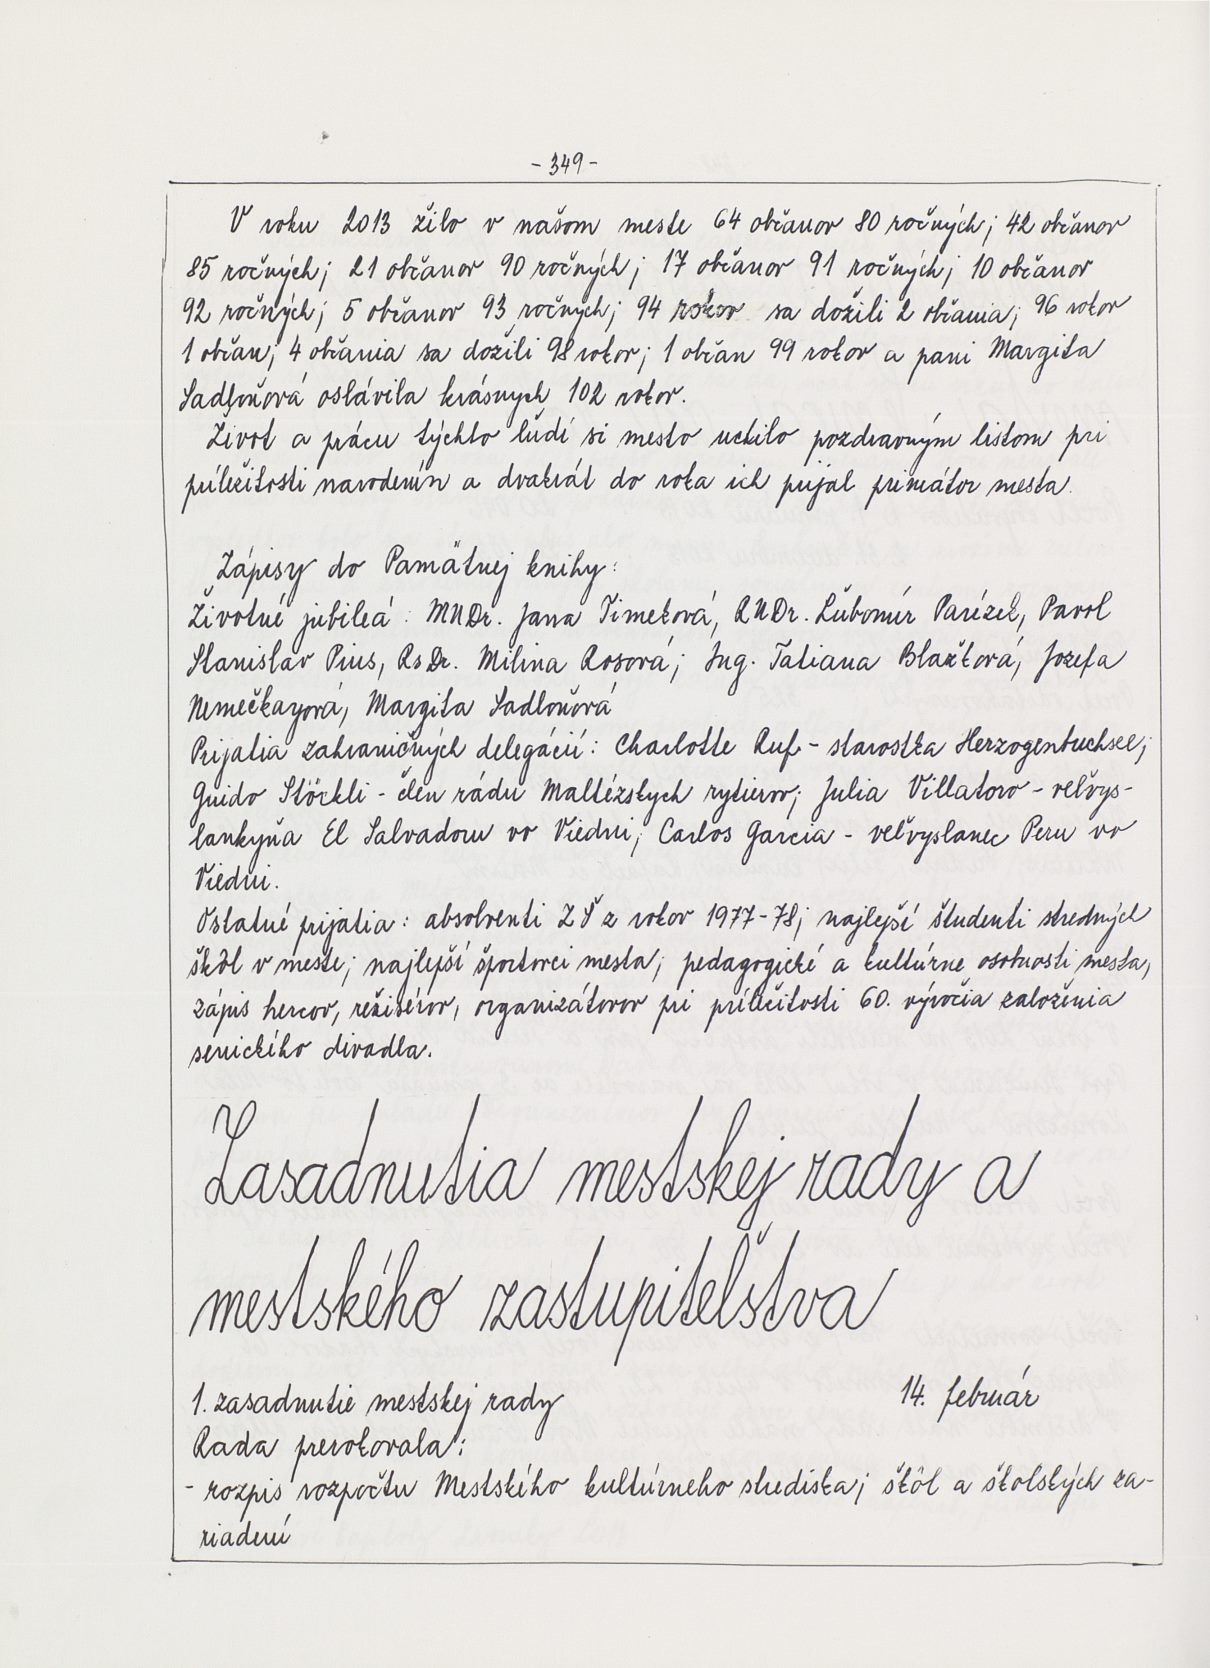 - 349 -
V roku 2013 žilo v našom meste 64 občanov 80 ročných; 42 občanov
85 ročných; 21 občanov 90 ročných; 17 občanov 91 ročných; 10 občanov
92 ročných; 5 občanov 93 ročných; 94 rokov sa dožili 2 občania; 96 rokov
1 občan; 4 občania sa dožili 98 rokov; 1 občan 99 rokov a pani Margita
Sadloňová oslávila krásnych 102 rokov.
Život a prácu týchto ľudí si mesto uctilo pozdravným listom pri
príležitosti narodenín a dvakrát do roka ich prijal primátor mesta.
Zápisy do Pamätnej knihy:
Životné jubileá: MUDr. Jana Timeková, RNDr. Ľubomír Parízek, Pavol
Stanislav Pius, RsDr. Milina Rosová; Ing. Tatiana Blažková; Jozefa
Nemečkayová; Margita Sadloňová
Prijatia zahraničných delegácií: Charlotte Ruf - starostka Herzogenbuchsee;
Guido Stöckli - člen rádu Maltézskych rytierov; Julia Villatoro - veľvys-
lankyňa El Salvadoru vo Viedni; Carlos Garcia - veľvyslanec Peru vo
Viedni.
Ostatné prijatia: absolventi ZŠ z rokov 1977-78; najlepší študenti stredných
škôl v meste; najlepší športovci mesta; pedagogické a kultúrne osobnosti mesta,
zápis hercov, režisérov, organizátorov pri príležitosti 60. výročia založenia
senického divadla.
Zasadnutia mestskej rady a
mestského zastupiteľstva
1. zasadnutie mestskej rady 14. február
Rada prerokovala:
- rozpis rozpočtu Mestského kultúrneho strediska; škôl a školských za-
riadení